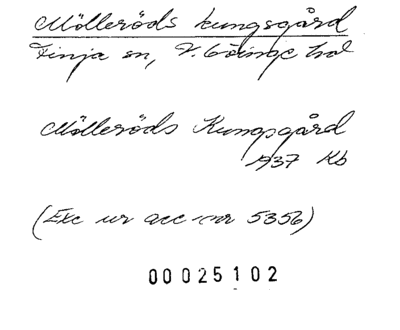 Mölleröds kungsgård
Finja sn, V. Göinge hd
Mölleröds Kungsgård
1937 Kb
(Exc ur acc nr 5356)
00025102